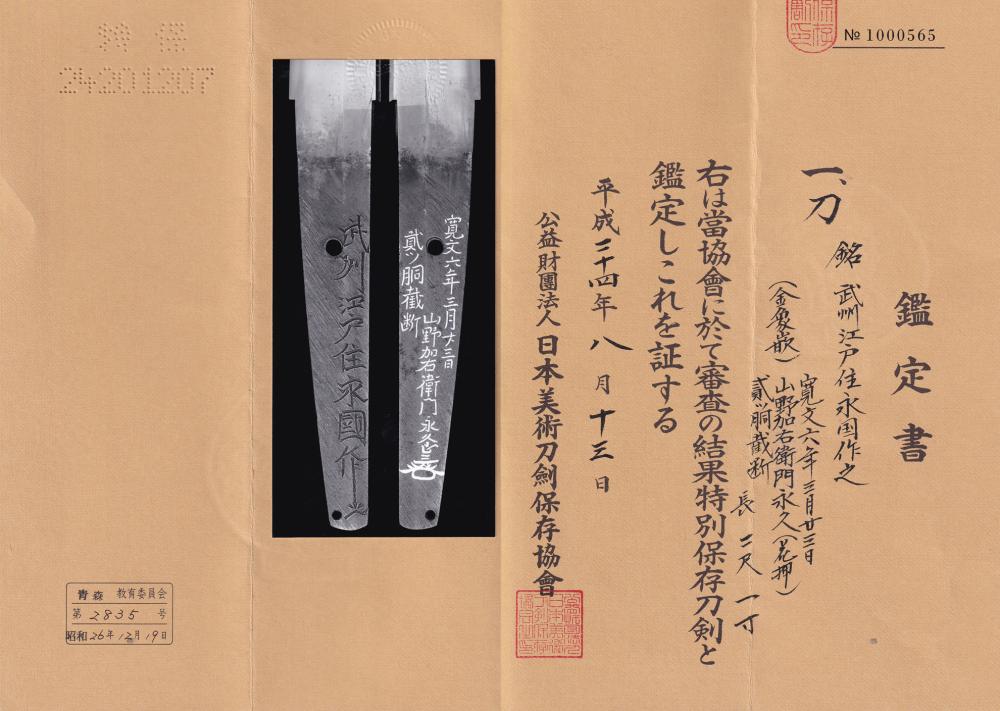 № 1000565
鑑定書
一、刀 銘 武州江戸住永国作之
(金象嵌) 寛文六年三月廿三日
山野加右衛門永久(花押)
貳ツ胴截断
長 二尺一寸
右は當協會に於て審査の結果特別保存刀剣と
鑑定しこれを証する
平成二十四年八月十三日
公益財團法人 日本美術刀劍保存協會
寛文六年三月廿三日
山野加右衛門永久
貳ツ胴截断
武州江戸住永國作之
24201207
青森 教育委員会
第 2835 号
昭和26年12月19日